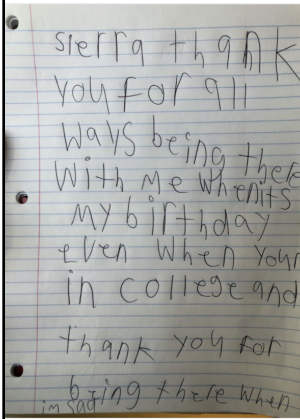 sierra thank
you for all
ways being there
with me when its
my birthday
even when your
in college and
thank you for
being there when
im sad